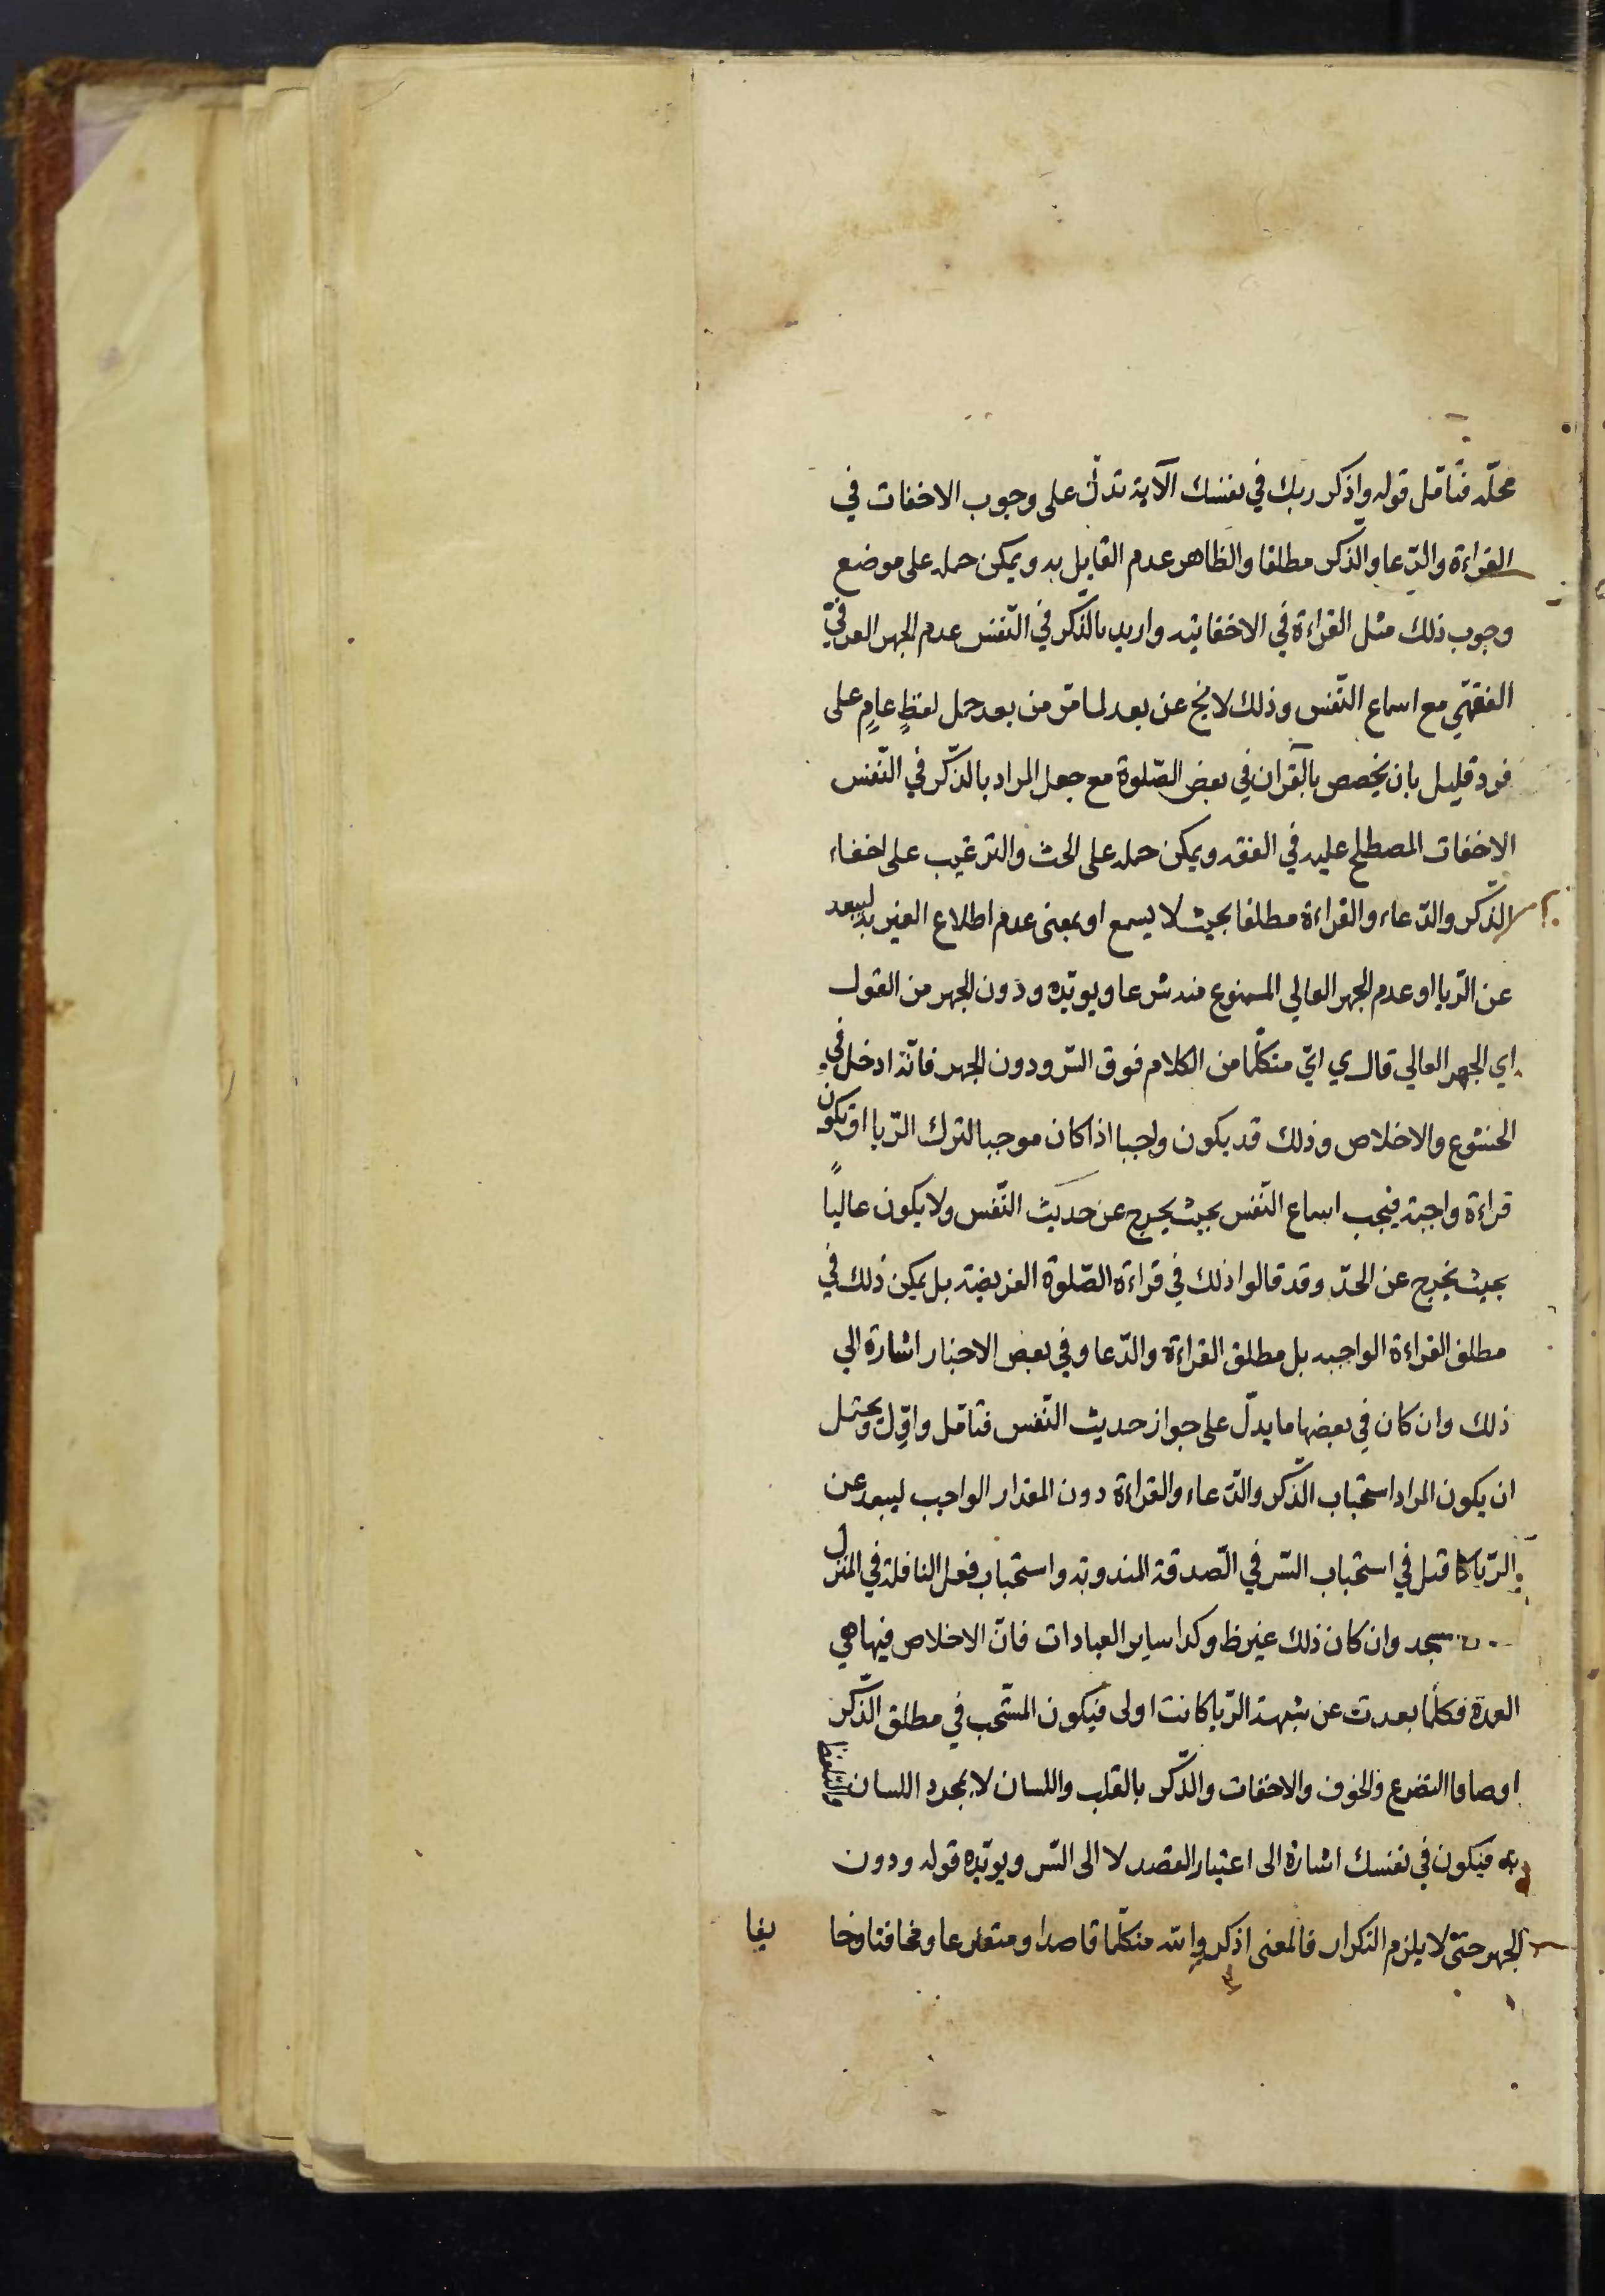 محلّه فتأمّل قوله واذكر ربك في نفسك الآية تدل على وجوب الاخفات في
القراءة والدّعا والذّكر مطلقا والظاهر عدم القايل به ويمكن حمله على موضع
وجوب ذلك مثل القراءة في الاخفاتيّه واريد بالذّكر في النّفس عدم الجهر العرفيّ
الفقهيّ مع اسماع النّفس وذلك لايخ عن بعد لما مرّ من بعد حمل لفظٍ عامٍ على
فرد قليل بان يخصص بالقرآن في بعض الصّلوة مع جعل المراد بالذّكر في النّفس
الاخفات المصطلح عليه في الفقه ويمكن حمله على الحث والترغيب على اخفاء
الذّكر والدّعاء والقراءة مطلقا بحيث لا يسمع او بمعنى عدم اطلاع الغير به ليبعد
عن الرّيا او عدم الجهر العالي الممنوع منه شرعا ويويّده ودون الجهر من القول
اي الجهر العالي قال ي ايّ متكلّما من الكلام فوق السّر ودون الجهر فانّه ادخل في
الخشوع والاخلاص وذلك قد يكون واجبا اذا كان موجبا لترك الرّيا او يكون
قراءة واجبة فيجب اسماع النّفس بحيث يخرج عن حديث النّفس ولا يكون عاليًا
بحيث يخرج عن الحدّ وقد قالوا ذلك في قراءة الصّلوة الفريضة بل يمكن ذلك في
مطلق القراءة الواجبه بل مطلق القراءة والدّعا وفي بعض الاخبار اشارة الي
ذلك وان كان في بعضها ما يدلّ على جواز حديث النّفس فتأمّل واوّل ويحتمل
ان يكون المراد استحباب الذّكر والدّعاء والقراءة دون المقدار الواجب ليبعد عن
الرّيا كما قيل في استحباب السّر في الصّدقة المندوبة واستحباب فعل النافلة في المنزل
سجد وان كان ذلك غير ظ وكذا ساير العبادات فانّ الاخلاص فيها هي
العمدة فكلّما بعدت عن شبهة الرّيا كانت اولى فيكون المستحب في مطلق الذّكر
اوصافا التضرع والخوف والاخفات والذّكر بالقلب واللسان لا بمجرد اللسان والتلفظ
به فيكون في نفسك اشارة الى اعتبار القصد لا الى السّر ويويّده قوله ودون
الجهر حتّى لا يلزم التكرار فالمعنى اذكروا الله متكلّما قاصدا ومتضرعا ومخافتا وخا
يفا